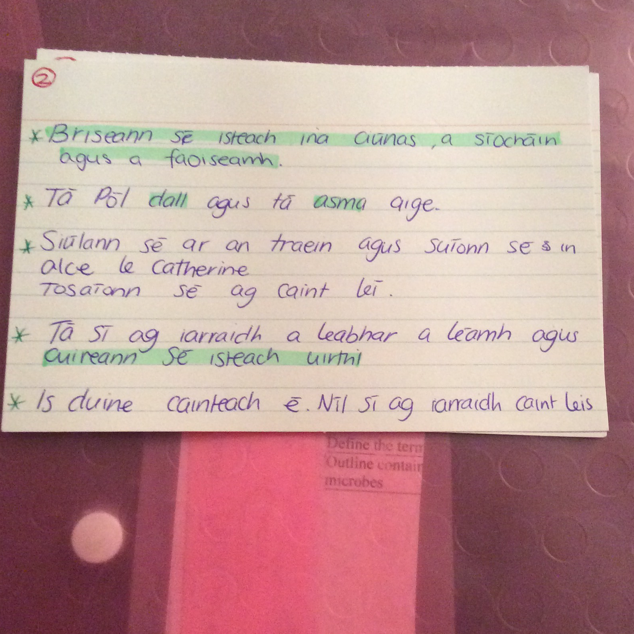 2
* Briseann sē isteach ina ciūnas, a sīochāin
agus a faoiseamh.
* Tā Pōl dall agus tā asma aige.
* Siūlann sē ar an traein agus suīonn sē s in
aice le Catherine
Tosaīonn sē ag caint lēi.
* Tā sī ag iarraidh a leabhar a lēamh agus
cuireann sē isteach uirthi
* Is duine cainteach ē. Nīl sī ag iarraidh caint leis
Define the term
Outline contain
microbes